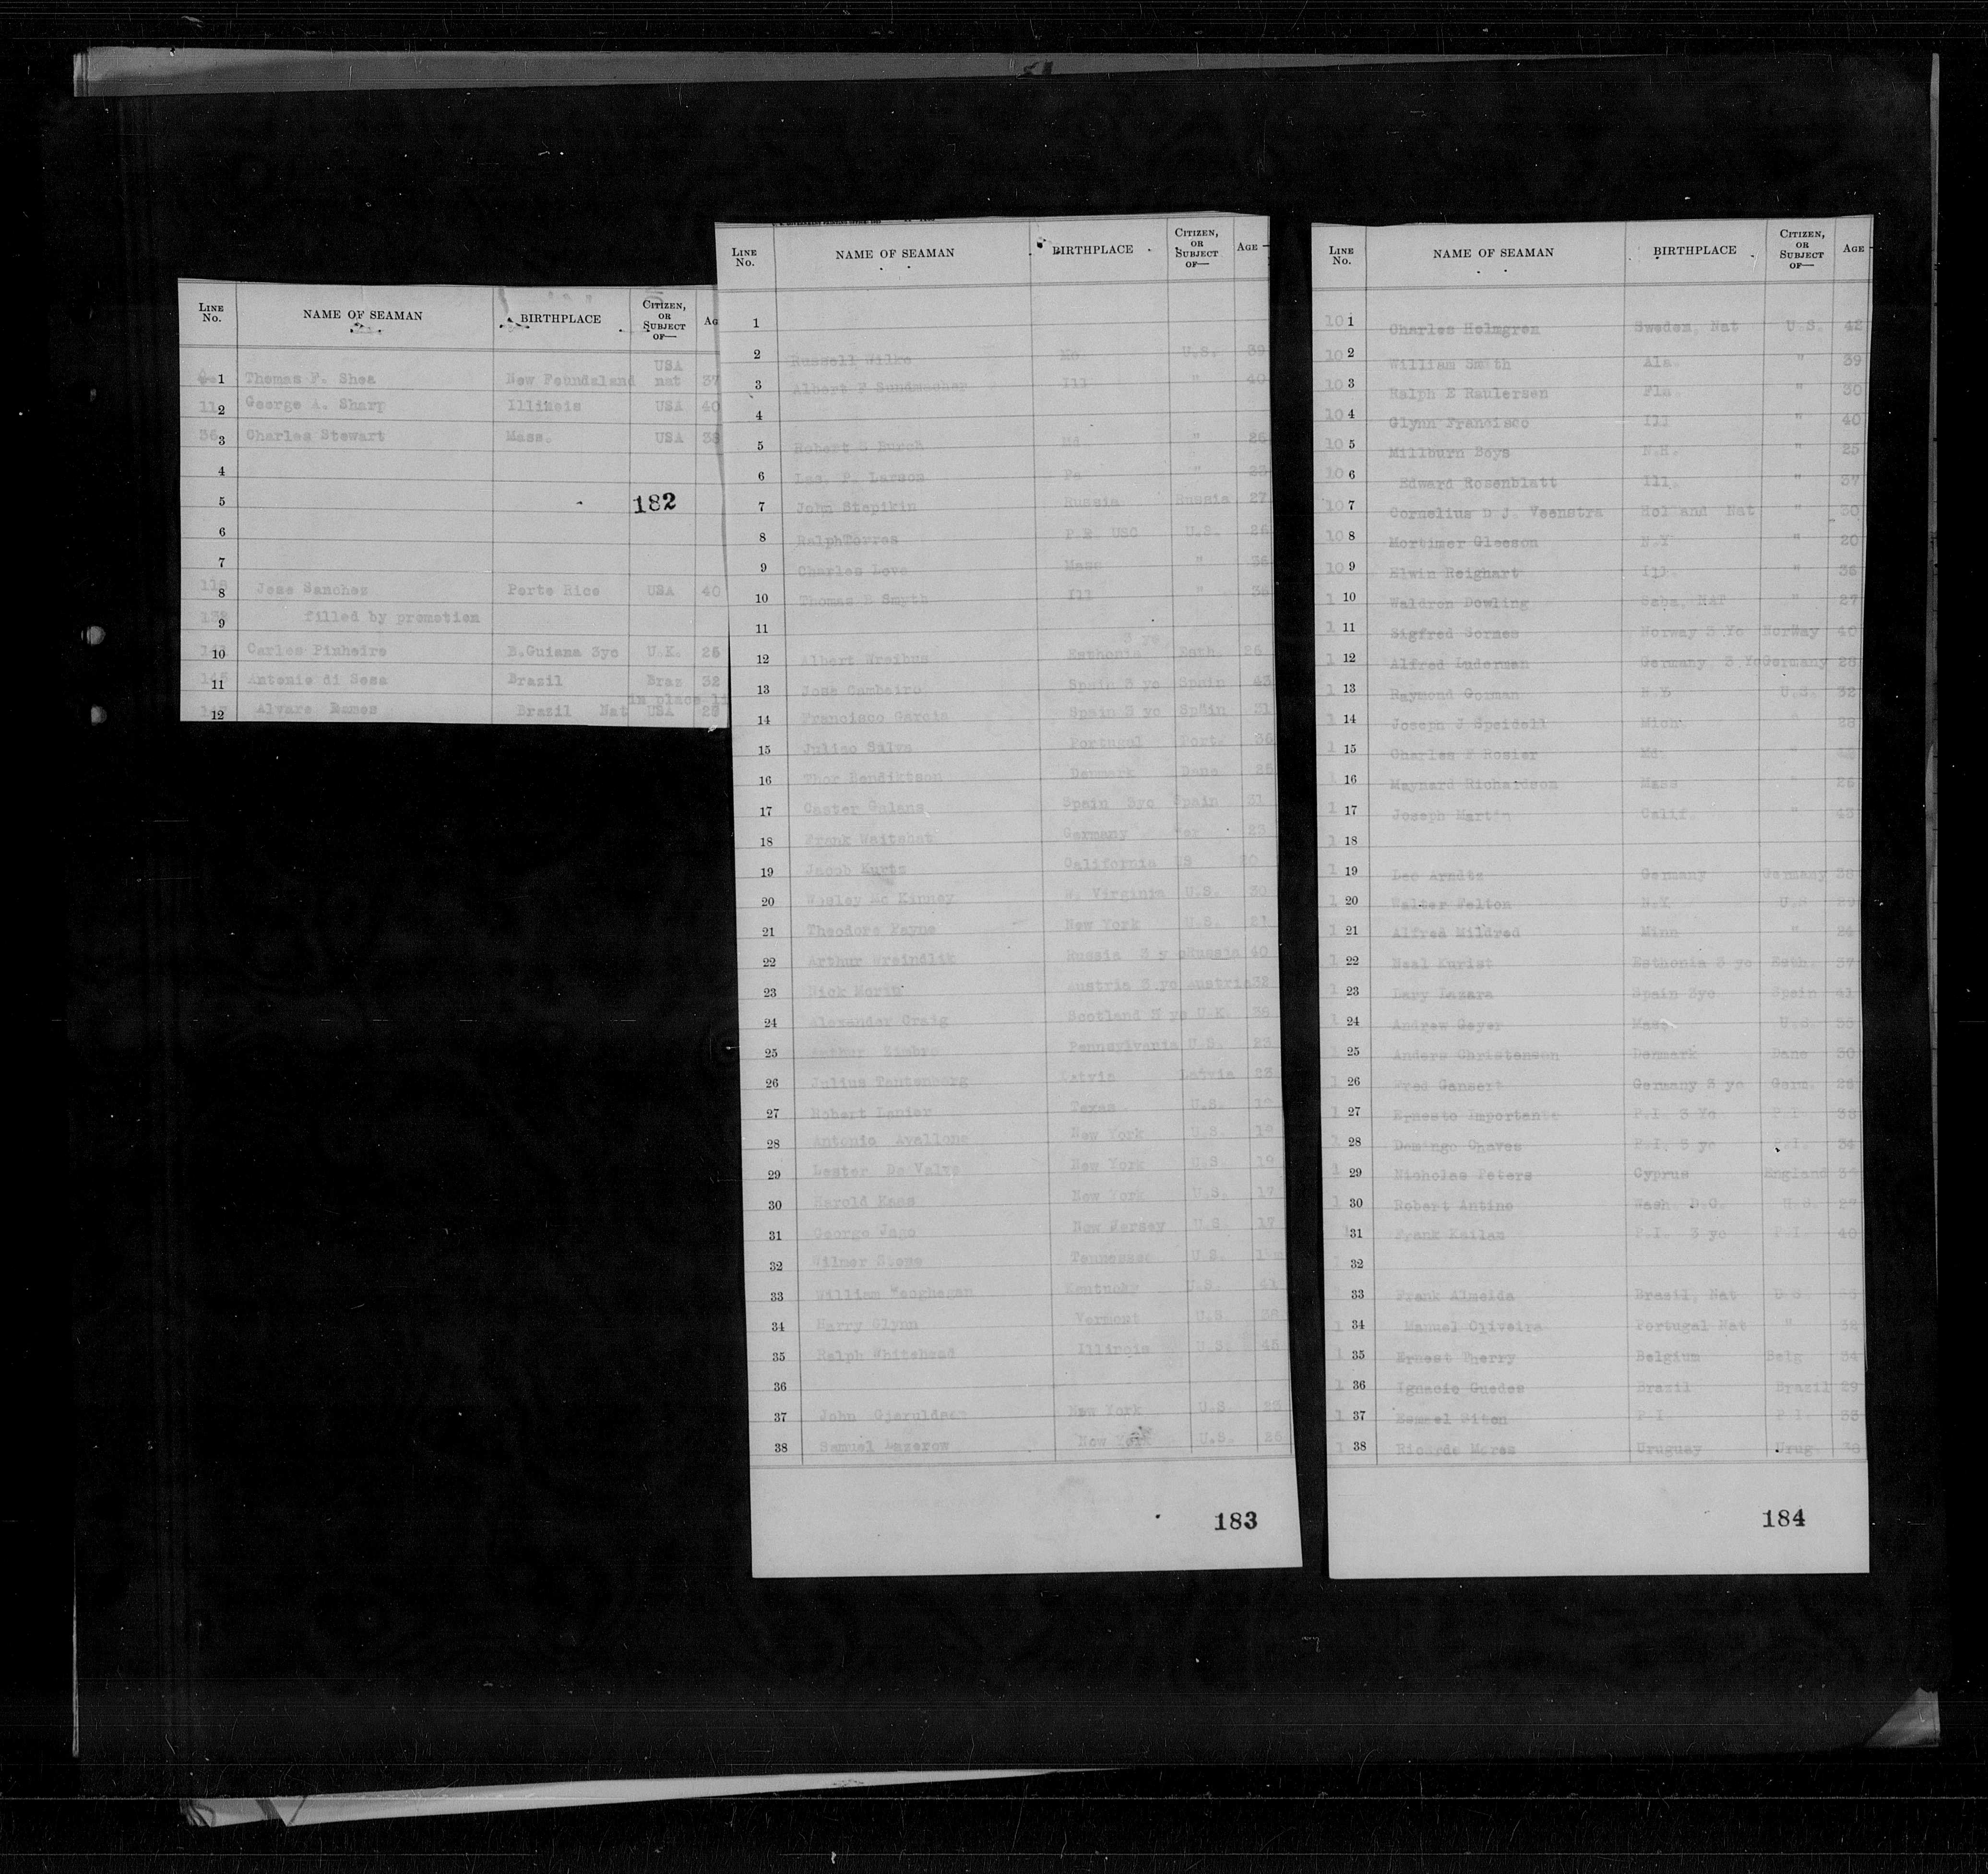 LINE No. NAME OF SEAMAN BIRTHPLACE CITIZEN, OR SUBJECT OF— AG
1 Thomas F. Shea New Foundaland USA nat 37
112 2 George A. Sharp Illinois USA 40
36 3 Charles Stewart Mass. USA 38
4
5 182
6
7
118 8 Jose Sanchez Porto Rico USA 40
9 filled by promotion
10 Carlos Pinheiro B.Guiana 3yo U.K. 26
11 Antonio di Sosa Brazil Braz 32
in place li
12 Alvaro Ramos Brazil Nat USA 28
LINE No. NAME OF SEAMAN BIRTHPLACE CITIZEN, OR SUBJECT OF— AGE
1
2 Russell Wilke Md. U.S. 39
3 Albert F Sundmacher Ill " 40
4
5 Robert S Burch Md. " 26
6 Leo. P. Larson Pa " 23
7 John Stepikin Russia Russia 27
8 RalphTorres P.R. USC U.S. 26
9 Charles Love Mass " 36
10 Thomas B Smyth Ill " 36
11
3 yo
12 Albert Wreibus Esthonia Esth. 26
13 Jose Cambeiro Spain 3 yo Spain 43
14 Francisco Garcia Spain 3 yo Spain 31
15 Julino Silva Portugal Port. 36
16 Thor Bendiktson Denmark Dane 25
17 Castor Galans Spain 3yo Spain 31
18 Frank Waitschat Germany 23
19 Jacob Kurtz California US 20
20 Wesley Mc Kinney W. Virginia U.S. 30
21 Theodore Payne New York U.S. 21
22 Arthur Wreindlik Russia 3 y oRussia 40
23 Nick Morin Austria 3 yo Austria32
24 Alexander Craig Scotland 3 yo U.K. 36
25 Arthur Zimbro Pennsylvania U.S. 23
26 Julius Tautenberg Latvia Latvia 23
27 Robert Lanier Texas U.S. 19
28 Antonio Avallone New York U.S. 19
29 Lester De Valve New York U.S. 19
30 Harold Kaas New York U.S. 17
31 George Jago New Jersey U.S. 17
32 Wilmer Stone Tennessee U.S.
33 William Meoghegan Kentucky U.S. 41
34 Harry Glynn Vermont U.S. 38
35 Ralph Whitehead Illinois U.S. 45
36
37 John Gjeruldsen New York U.S. 23
38 Samuel Lazerow New York U.S. 26
183
LINE No. NAME OF SEAMAN BIRTHPLACE CITIZEN, OR SUBJECT OF— AGE
10 1 Charles Holmgren Sweden, Nat U.S. 42
10 2 William Smith Ala. " 39
10 3 Ralph E Raulersen Fla. " 30
10 4 Glynn Francisco Ill " 40
10 5 Millburn Boys N.H. " 25
10 6 Edward Rosenblatt Ill. " 37
10 7 Cornelius D J. Veenstra Holland Nat " 30
10 8 Mortimer Gleeson N.Y " 20
10 9 Elwin Reighart Ill. " 36
1 10 Waldron Dowling Saba, NAT " 27
1 11 Sigfred Sornes Norway 3 Yo Norway 40
1 12 Alfred Luderman Germany, 3 YoGermany 28
1 13 Raymond Gorman N.Y U.S. 32
1 14 Joseph J Speidell Mich. " 28
1 15 Charles F Rosier Md. "
1 16 Maynard Richardson Mass " 26
1 17 Joseph Martin Calif. " 43
1 18
1 19 Leo Arndts Germany Germany 38
1 20 Walter Felton N.Y. U.S 29
1 21 Alfred Mildred Minn " 24
1 22 Neal Kurist Esthonia 3 yo Esth. 37
1 23 Lary Lazara Spain 3yo Spain 41
1 24 Andrew Geyer Mass U.S. 35
25 Anders Christensen Denmark Dane 30
1 26 Fred Gansert Germany 3 yo Germ. 26
1 27 Ernesto Importante P.I. 3 Yo P.I. 38
1 28 Domingo Chaves P.I. 3 yo P.I. 34
1 29 Nicholas Peters Cyprus England 34
1 30 Robert Antino Wash. D.C. U.S. 27
31 Frank Kailan P.I. 3 yo P.I. 40
32
33 Frank Almeida Brasil, Nat U.S.
1 34 Manuel Oliveira Portugal Nat " 32
1 35 Ernest Therry Belgium Belg 34
1 36 Ignacio Guedes Brazil Brazil 29
1 37 Esmael Biton P.I. P.I. 33
1 38 Ricardo Mores Uruguay Urug. 30
184